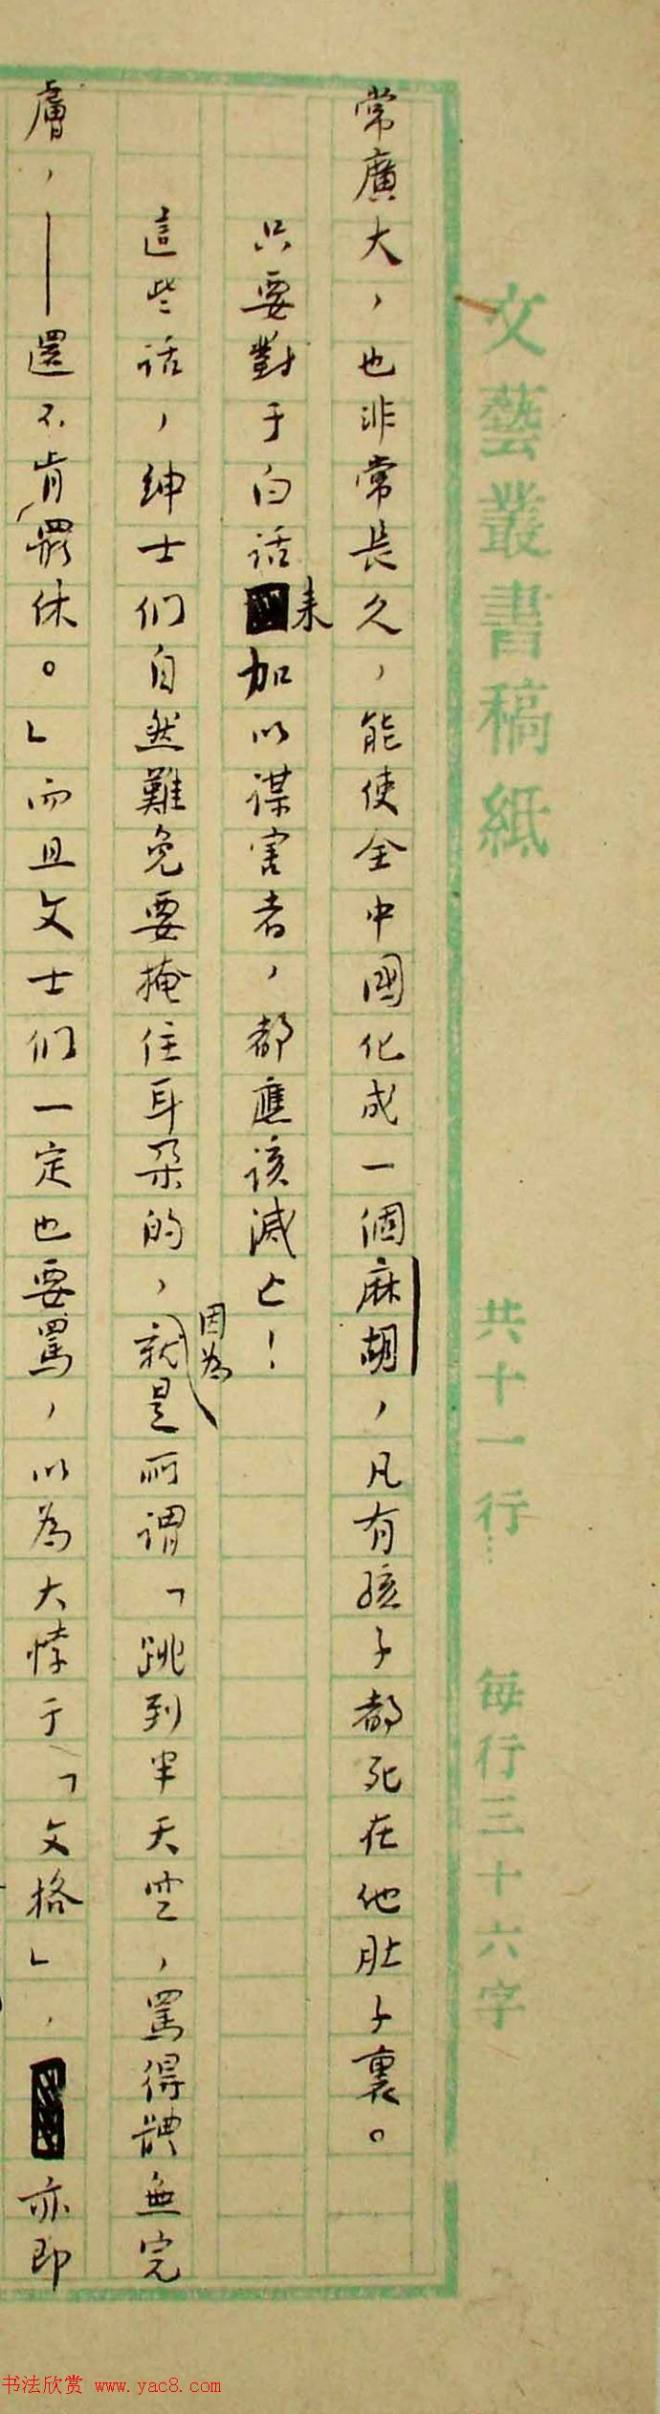 文藝叢書稿紙　共十一行…　每行三十六字
常廣大，也非常長久，能使全中國化成一個麻胡，凡有孩子都死在他肚子裏。
只要對于白話來加以謀害者，都應該滅亡！
這些話，紳士们自然難免要掩住耳朵的，因為就是所謂「跳到半天空，罵得體無完
膚，——還不肯罷休。」而且文士们一定也要罵，以為大悖于「文格」，亦即
书法欣赏 www.yac8.com